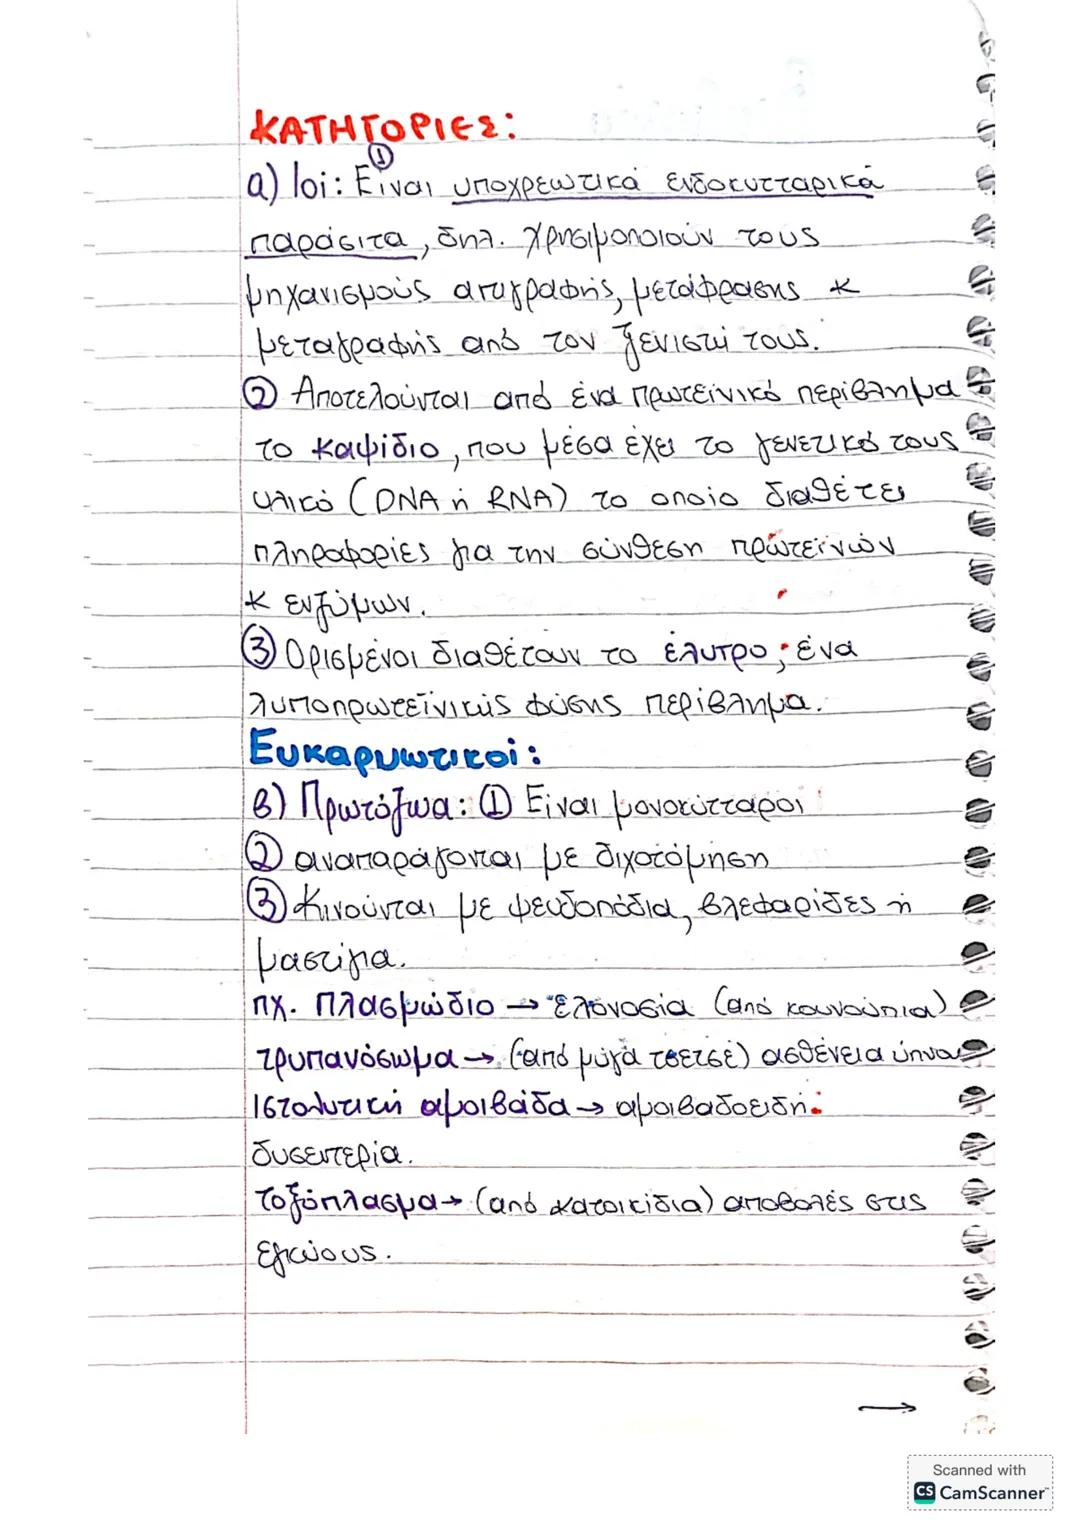 ΚΑΤΗΓΟΡΙΕΣ:
α) Ιοί: ① Είναι υποχρεωτικά ενδοκυτταρικά
παράσιτα, δηλ. χρησιμοποιούν τους
μηχανισμούς αντιγραφής, μετάφρασης κ
μεταγραφής από τον ξενιστή τους.
② Αποτελούνται από ένα πρωτεϊνικό περίβλημα
το καψίδιο, που μέσα έχει το γενετικό τους
υλικό (DNA ή RNA) το οποίο διαθέτει
πληροφορίες για την σύνθεση πρωτεϊνών
κ ενζύμων.
③ Ορισμένοι διαθέτουν το έλυτρο, ένα
λυποπρωτεϊνικής φύσης περίβλημα.
Ευκαρυωτικοί:
β) Πρωτόζωα: ① Είναι μονοκύτταροι
② αναπαράγονται με διχοτόμηση
③ Κινούνται με ψευδοπόδια, βλεφαρίδες ή
μαστίγια.
πχ. Πλασμώδιο → Ελονοσία (από κουνούπια)
τρυπανόσωμα → (από μύγα τσετσέ) ασθένεια ύπνου
Ιστολυτική αμοιβάδα → αμοιβαδοειδή
δυσεντερία.
Τοξόπλασμα → (από κατοικίδια) αποβολές στις
εγκύους.
→
Scanned with
CS CamScanner